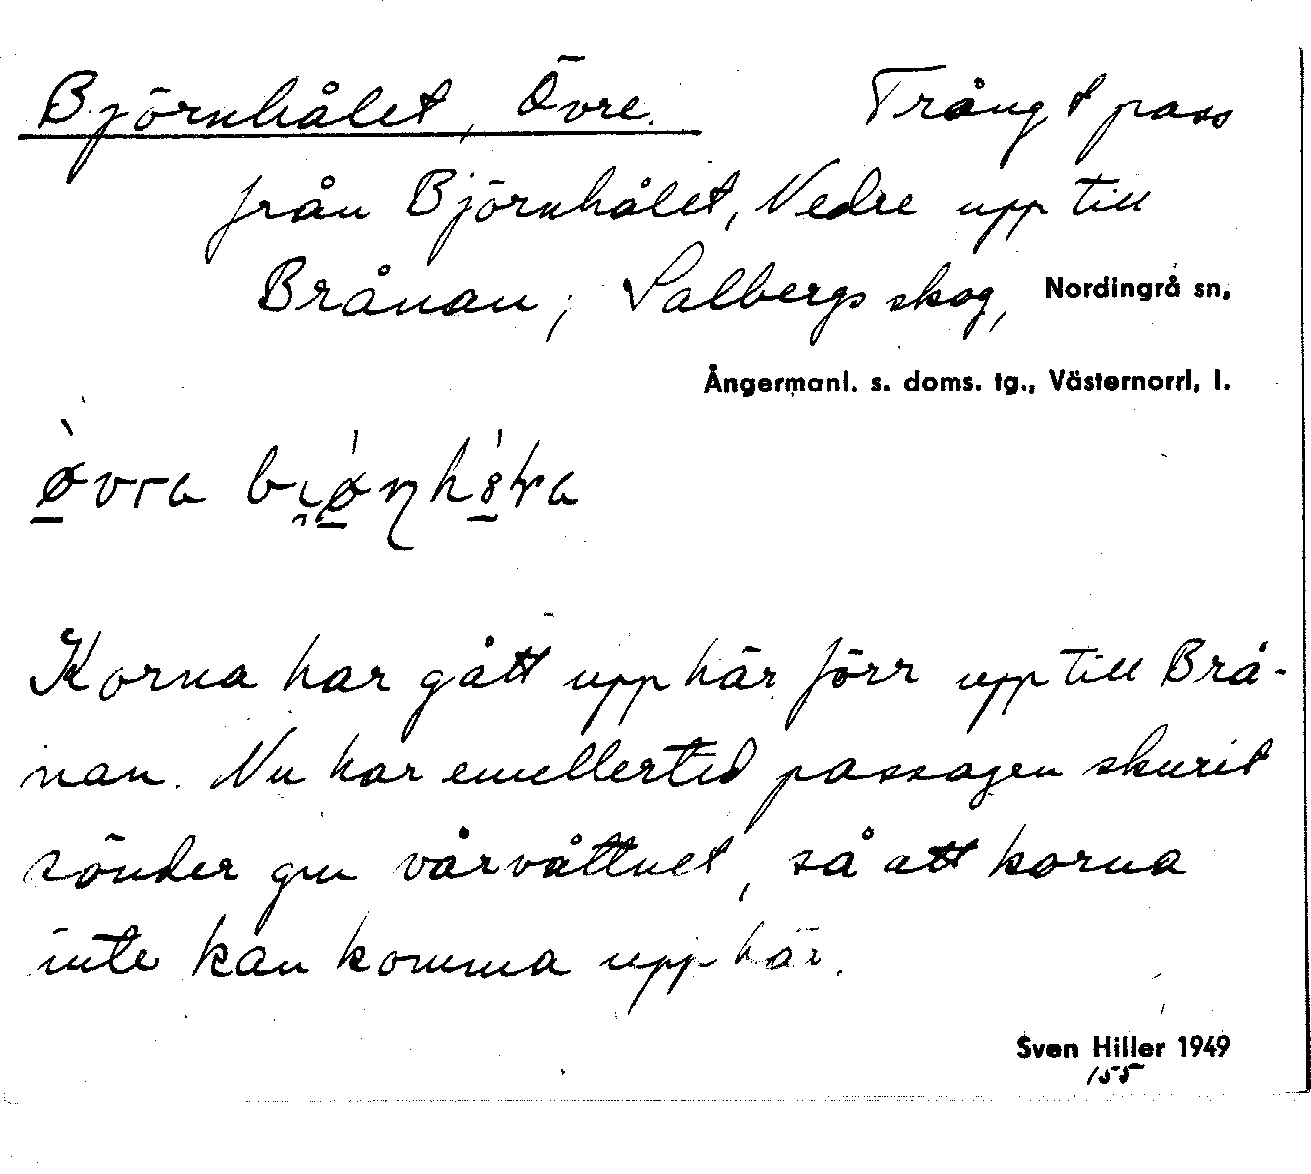 Björnhålet, Övre. Trångt pass
från Björnhålet, Nedre upp till
Brånan, Salbergs skog, Nordingrå sn,
Ångermanl. s. doms. tg., Västernorrl, l.
Korna har gått upp här förr upp till Brå-
nan. Nu har emellertid passagen skurit
sönder gm vårvattnet, så att korna
inte kan komma upp här.
Sven Hiller 1949
155